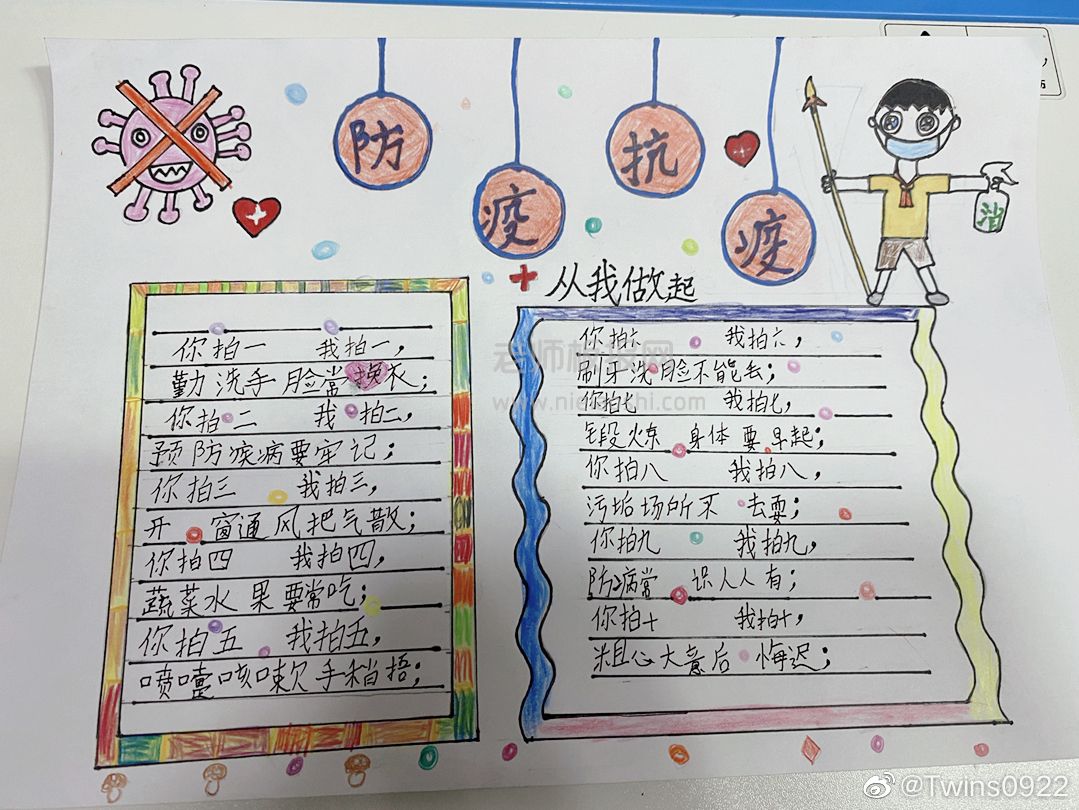 防疫抗疫
从我做起
消
你拍一 我拍一，
勤洗手 脸常换衣；
你拍二 我拍二，
预防疾病要牢记；
你拍三 我拍三，
开 窗通风把气散；
你拍四 我拍四，
蔬菜水果要常吃；
你拍五 我拍五，
喷嚏咳嗽手稍捂；
你拍六 我拍六，
刷牙洗脸不能丢；
你拍七 我拍七，
锻炼 身体要早起；
你拍八 我拍八，
污垢场所不去耍；
你拍九 我拍九，
防病常 识人人有；
你拍十 我拍十，
粗心大意后悔迟；
@Twins0922